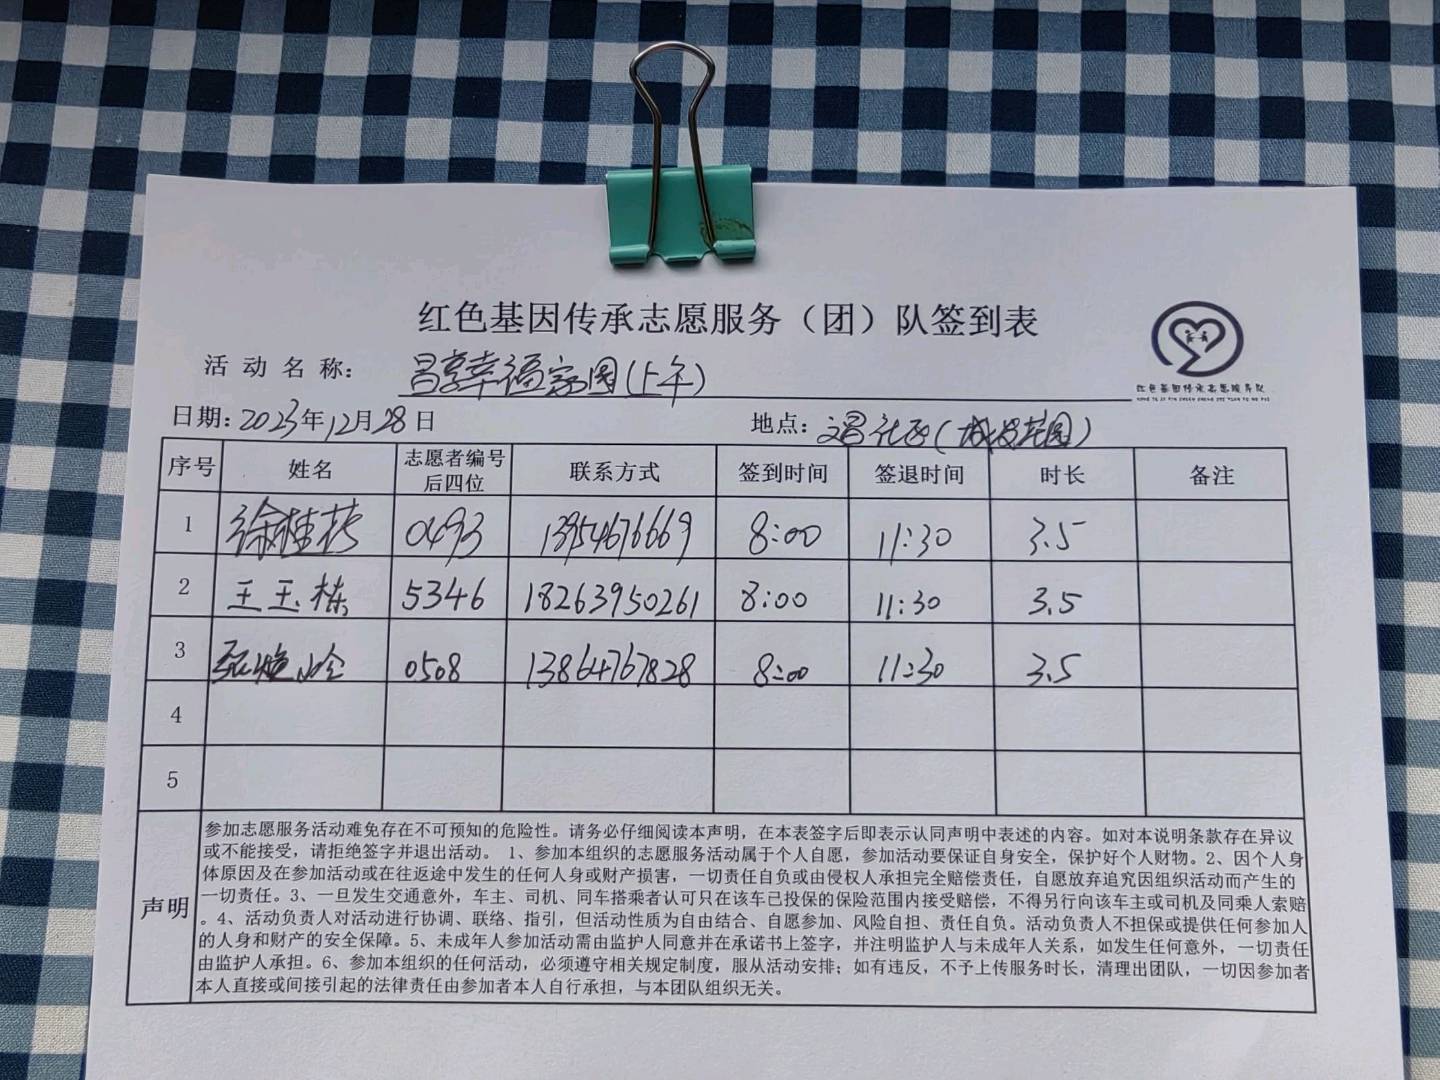 红色基因传承志愿服务（团）队签到表
活动名称： 昌享幸福家园(上午)
红色基因传承志愿服务队
日期: 2023年12月28日 地点: 文昌社区(城投花园)
序号 姓名 志愿者编号后四位 联系方式 签到时间 签退时间 时长 备注
1 徐桂 0493 13954676669 8:00 11:30 3.5
2 王玉栋 5346 18263950261 8:00 11:30 3.5
3 0508 13864767828 8:00 11:30 3.5
4
5
声明
参加志愿服务活动难免存在不可预知的危险性。请务必仔细阅读本声明，在本表签字后即表示认同声明中表述的内容。如对本说明条款存在异议
或不能接受，请拒绝签字并退出活动。 1、参加本组织的志愿服务活动属于个人自愿，参加活动要保证自身安全，保护好个人财物。2、因个人身
体原因及在参加活动或在往返途中发生的任何人身或财产损害，一切责任自负或由侵权人承担完全赔偿责任，自愿放弃追究因组织活动而产生的
一切责任。3、一旦发生交通意外，车主、司机、同车搭乘者认可只在该车已投保的保险范围内接受赔偿，不得另行向该车主或司机及同乘人索赔
。4、活动负责人对活动进行协调、联络、指引，但活动性质为自由结合、自愿参加、风险自担、责任自负。活动负责人不担保或提供任何参加人
的人身和财产的安全保障。5、未成年人参加活动需由监护人同意并在承诺书上签字，并注明监护人与未成年人关系，如发生任何意外，一切责任
由监护人承担。6、参加本组织的任何活动，必须遵守相关规定制度，服从活动安排；如有违反，不予上传服务时长，清理出团队，一切因参加者
本人直接或间接引起的法律责任由参加者本人自行承担，与本团队组织无关。